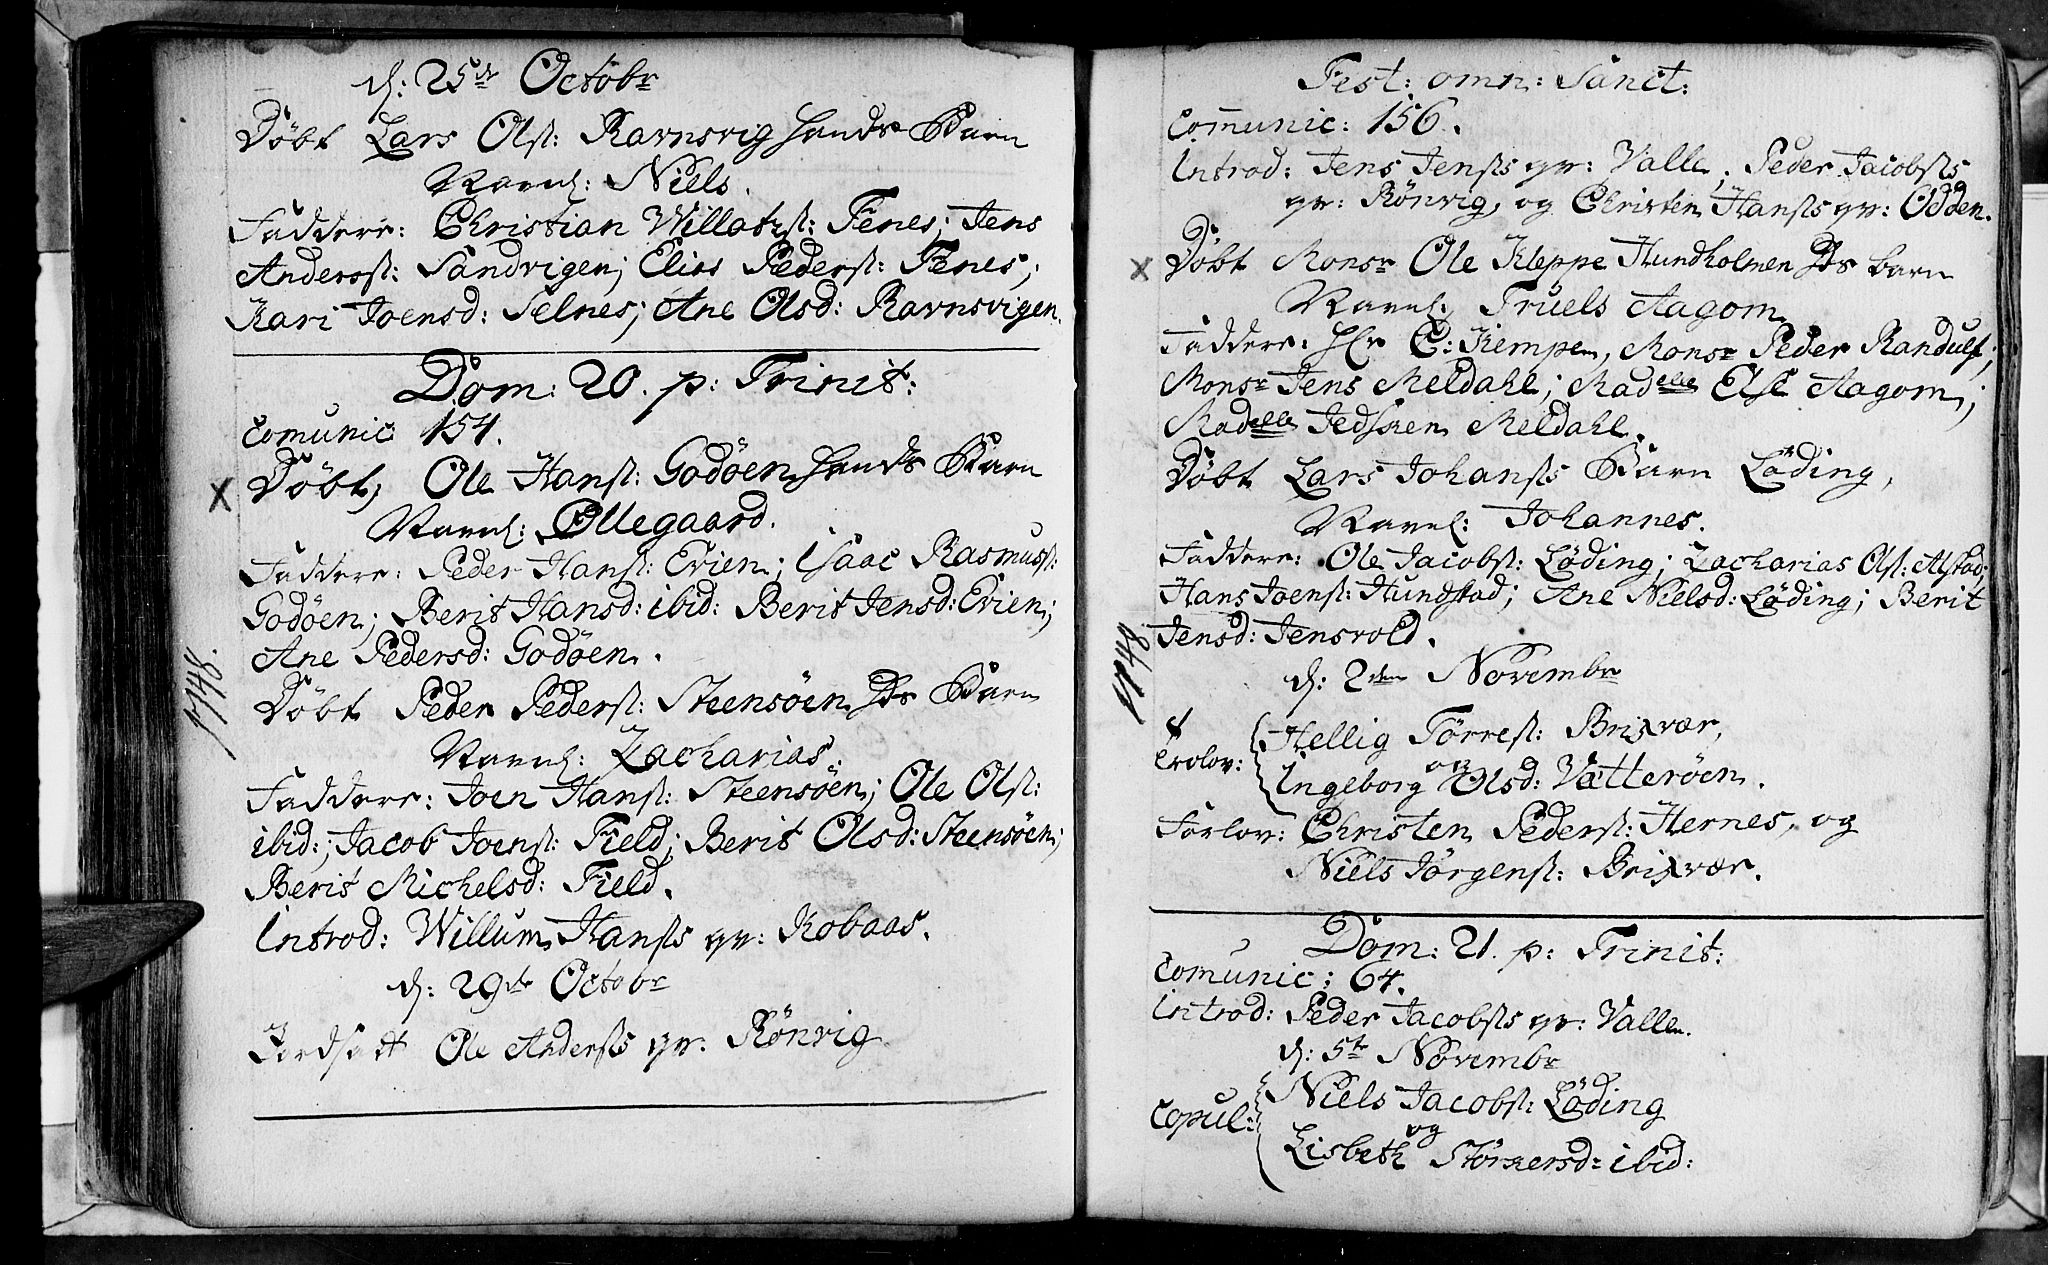 d: 25de Octobr
Döbt Lars Ols: Ravnsvig hands Barn
Navnl: Niels.
Faddere: Christian Willats: Fenes; Jens
Anderss: Sandvigen; Elias Peders: Fenes;
Kari Joensd: Selnes; Ane Olsd: Ravnsvigen.
Dom: 20. p: Trinit:
Comunic 154.
Döbt, Ole Hans: Godöen hands Barn
Navnl: Ollegaard.
Faddere: Peder Hans: Evien; Isaac Rasmuss:
Godöen; Berit Hansd: ibid: Berit Jensd: Evien;
Ane Pedersd: Godöen.
1748.
Döbt Peder Peders: Steensöen Hs Barn
Navnl: Zacharias.
Faddere: Joen Hans: Steensöen; Ole Ols:
ibid:; Jacob Joens: Field; Berit Olsd: Steensöen;
Berit Michelsd: Field.
Introd: Willum Hanss qv: Kobaas.
d: 29de Octobr
Jordsatt Ole Anderss qv: Rönvig
Fest: omn: Sanct:
Comunic: 156.
Introd: Jens Jenss qv: Valle, Peder Jacobss
qv: Rönvig, og Christen Hanss qv: Odden.
Döbt Monsr Ole Kleppe Hundholmen Hs barn
Navnl: Truels Aagom
Faddere: Hr C: Kempe, Monsr Peder Randulf;
Monsr Jens Meldahl; Madelle Else Aagom;
Madelle Meldahl.
Döbt Lars Johanss Barn Löding,
Navnl: Johannes.
Faddere: Ole Jacobs: Löding; Zacharias Ols: Alstad;
Hans Joens: Hundstad; Ane Nielsd: Löding; Berit
Jensd: Jensvold.
1748
d: 2den Novembr
Trolov: Hellig Törres: Brixvær,
og
Ingeborg Olsd: Vatteröen.
Forlov: Christen Peders: Hernes, og
Niels Jörgens: Brixvær.
Dom: 21. p: Trinit:
Comunic: 64.
Introd: Peder Jacobss qv: Valle.
d: 5te Novembr
Copul: Niels Jacobs: Löding
og
Lisbeth Störkersd: ibid: